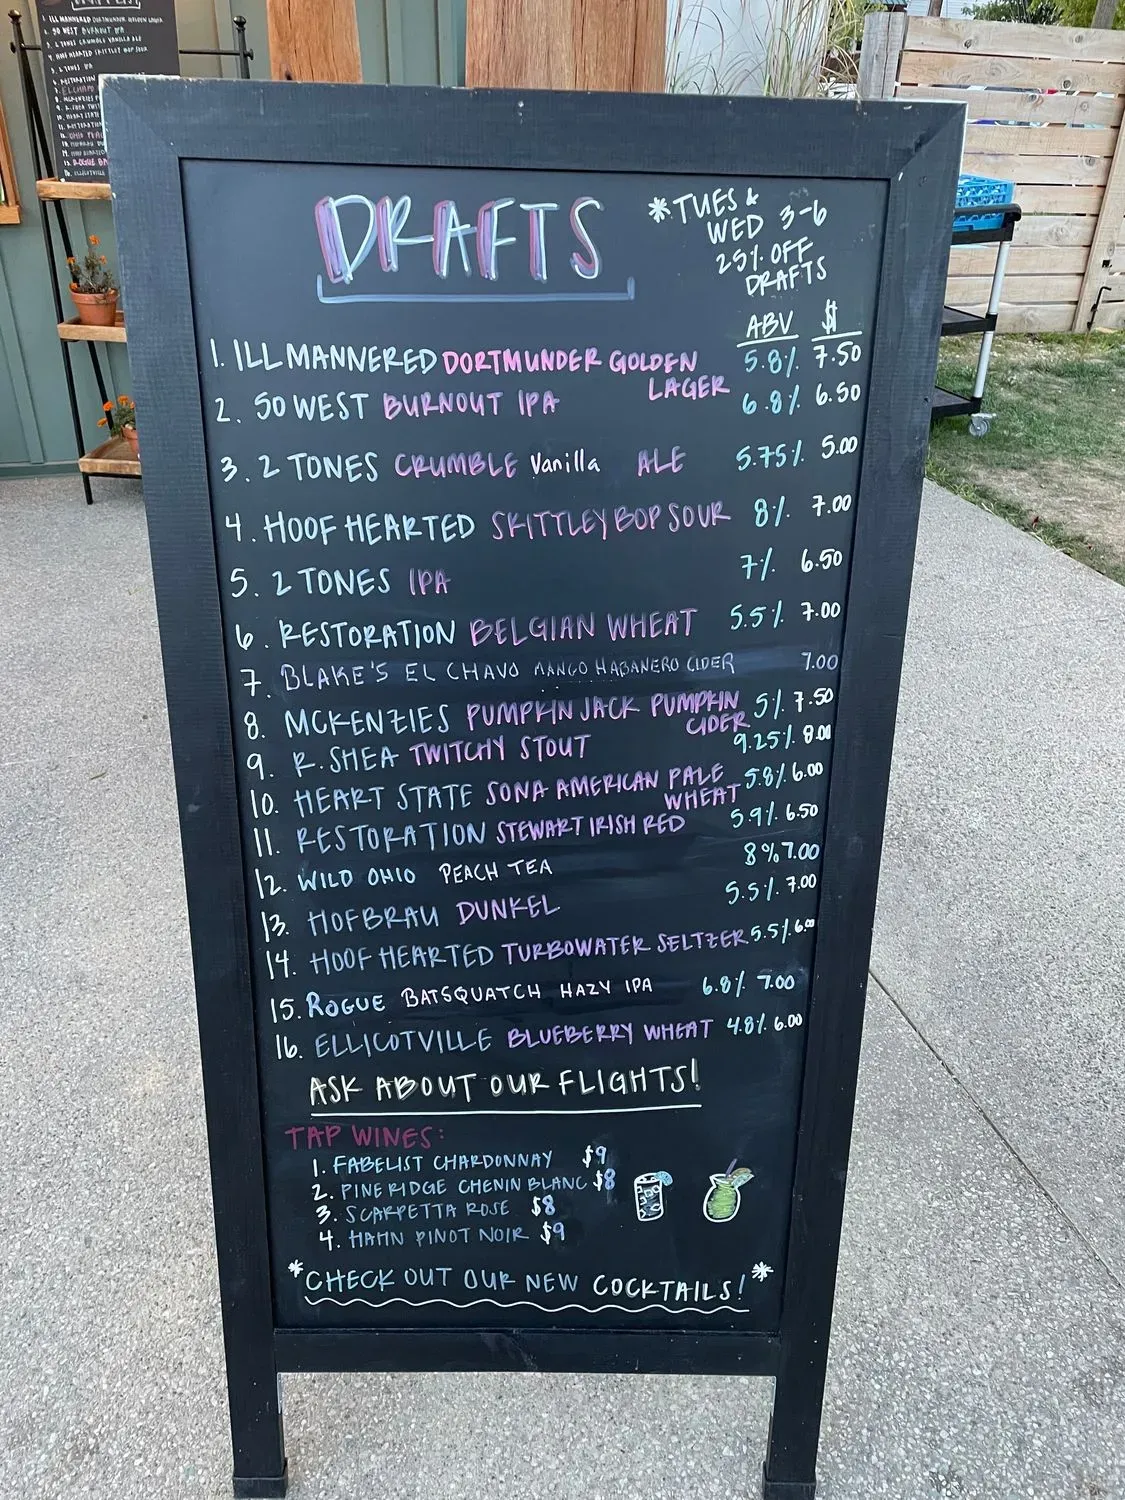 DRAFTS
*TUES &
WED 3-6
25% OFF
DRAFTS
ABV $
1. ILL MANNERED DORTMUNDER GOLDEN 5.8% 7.50
LAGER
2. 50 WEST BURNOUT IPA 6.8% 6.50
3. 2 TONES CRUMBLE Vanilla ALE 5.75% 5.00
4. HOOF HEARTED SKITTLEY BOP SOUR 8% 7.00
5. 2 TONES IPA 7% 6.50
6. RESTORATION BELGIAN WHEAT 5.5% 7.00
7. BLAKE'S EL CHAVO MANGO HABANERO CIDER 7.00
8. MCKENZIES PUMPKIN JACK PUMPKIN 5% 7.50
CIDER
9. R. SHEA TWITCHY STOUT 9.25% 8.00
10. HEART STATE SONA AMERICAN PALE 5.8% 6.00
WHEAT
11. RESTORATION STEWART IRISH RED 5.9% 6.50
12. WILD OHIO PEACH TEA 8% 7.00
13. HOFBRAU DUNKEL 5.5% 7.00
14. HOOF HEARTED TURBOWATER SELTZER 5.5% 6.00
15. ROGUE BATSQUATCH HAZY IPA 6.8% 7.00
16. ELLICOTVILLE BLUEBERRY WHEAT 4.8% 6.00
ASK ABOUT OUR FLIGHTS!
TAP WINES:
1. FABELIST CHARDONNAY $9
2. PINE RIDGE CHENIN BLANC $8
3. SCARPETTA ROSE $8
4. HAHN PINOT NOIR $9
*CHECK OUT OUR NEW COCKTAILS!*
1. ILL MANNERED DORTMUNDER GOLDEN LAGER
2. 50 WEST BURNOUT IPA
3. 2 TONES CRUMBLE VANILLA ALE
4. HOOF HEARTED SKITTLEY BOP SOUR
5. 2 TONES IPA
6. RESTORATION